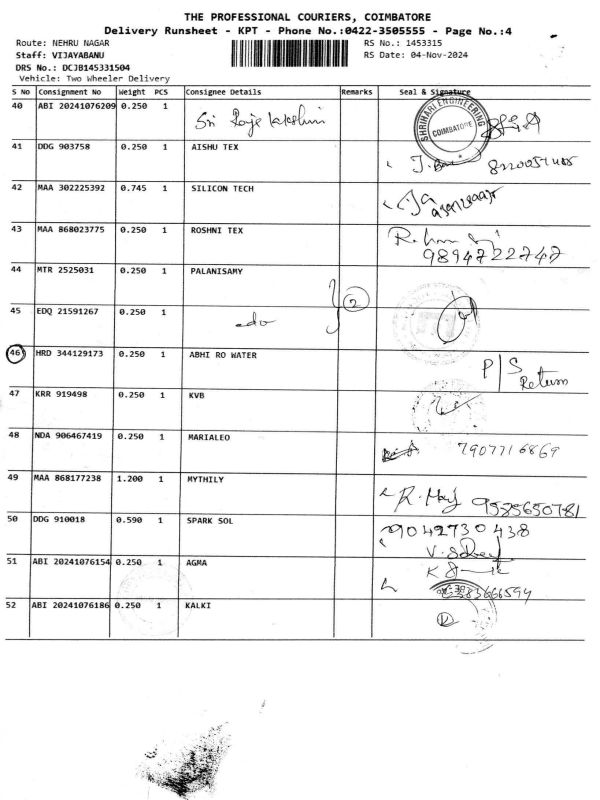 THE PROFESSIONAL COURIERS, COIMBATORE
Delivery Runsheet - KPT - Phone No.:0422-3505555 - Page No.:4
Route: NEHRU NAGAR RS No.: 1453315
Staff: VIJAYABANU RS Date: 04-Nov-2024
DRS No.: DCJB145331504
Vehicle: Two Wheeler Delivery
S No Consignment No Weight PCS Consignee Details Remarks Seal & Signature
40 ABI 20241076209 0.250 1 Sri Raje lakshmi SHRIHARI ENGINEERING COIMBATORE
41 DDG 903758 0.250 1 AISHU TEX
42 MAA 302225392 0.745 1 SILICON TECH
43 MAA 868023775 0.250 1 ROSHNI TEX
9894722747
44 MTR 2525031 0.250 1 PALANISAMY
2
45 EDQ 21591267 0.250 1 edo
46 HRD 344129173 0.250 1 ABHI RO WATER P S Return
47 KRR 919498 0.250 1 KVB
48 NDA 906467419 0.250 1 MARIALEO 7907716869
49 MAA 868177238 1.200 1 MYTHILY 9585650781
50 DDG 910018 0.590 1 SPARK SOL 9042730438
51 ABI 20241076154 0.250 1 AGMA
52 ABI 20241076186 0.250 1 KALKI